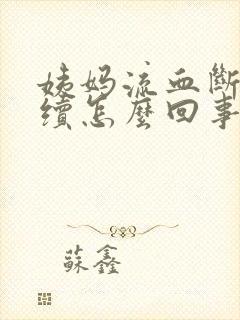 姨妈流血斷
續怎麼回事
蘇鑫